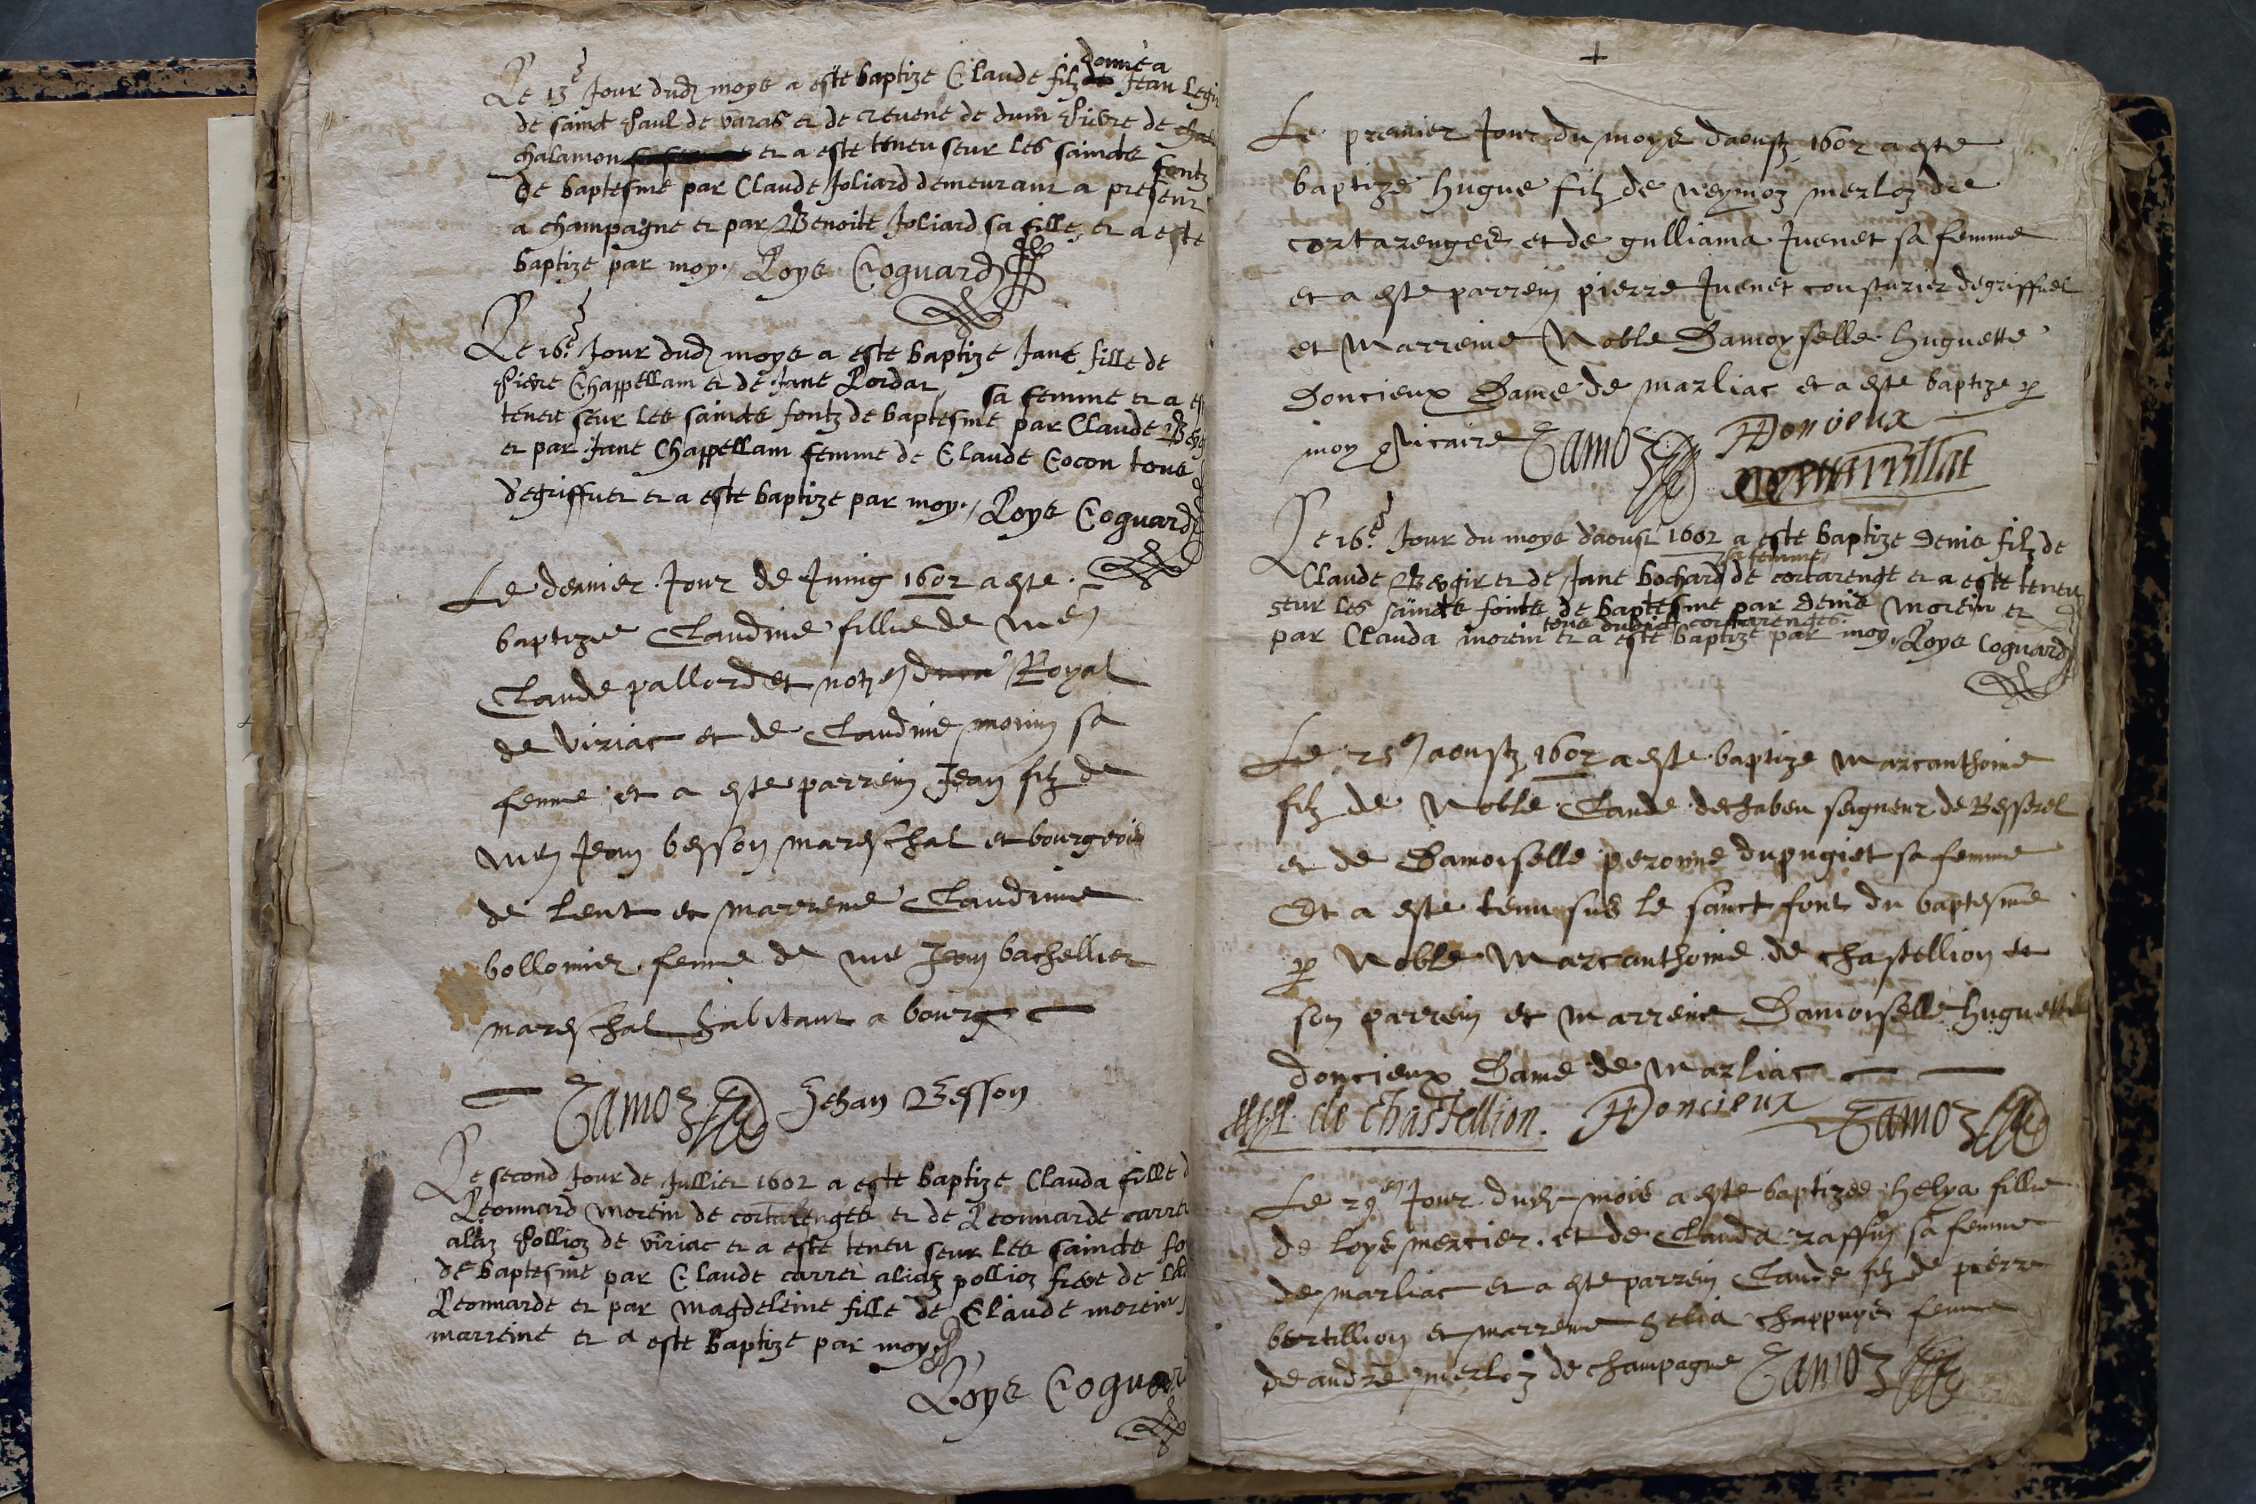 donné a
Le 13e Jour dudj moys a este baptize Claude filz de Jean
de sainct Paul de varas et de
chalamon et a este teneu seur les saincts fontz
de baptesme par Claude Joliard demeurant a present
a champagne et par Benoite Joliard sa fille et a este
baptize par moy. Loys Coguard
Le 16e Jour dudj moys a este baptize Jane fille de
Pierre Chappellam et de Jane Lordat sa femme et a
teneu seur les saincts fontz de baptesme par Claude
et par Jane Chappellam femme de Claude Cocon tous
degriffuet et a este baptize par moy. Loys Coguard
Le dernier Jour de Juing 1602 a este
baptizee Claudine fillie de
Claude pallord et Royal
de Viriac et de Claudine morin sa
femme et a este parrein Jean filz de
Jean besson mareschal et bourgeois
de Lent et marreine Claudine
bollomier femme de me Jean bachellier
mareschal habitant a bourg
Tamoz Jehan Besson
Le second Jour de Jullier 1602 a este baptize Clauda fille d
Leonnard morein de cortarenges et de Leonnarde carret
aliaz Pollioz de viriac et a este teneu seur les saincts
de baptesme par Claude carret aliaz pollioz frere de
Leonnarde et par magdeleine fille de Claude morein
marreine et a este baptize par moy
Loys Coguar
+
Le premier Jour du moys daoust 1602 a este
baptize hugue filz de neymoz merloz de
cortarenges et de gulliama Juenet sa femme
et a este parrein pierre Juenet cousturier degriffuet
et Marreine Noble Damoyselle huguette
Doncieux Dame de marliac et a este baptize p
moy vicaire Tamoz HDoncieux
Le 16e Jour du moys d'aoust 1602 a este baptize Denis filz de
sa femme
Claude Beogir et de Jane bochard de cortarenge et a este teneu
seur les saincts fonts de baptesme par Denis morein et
tous dudict cortarenges
par Clauda morein et a este baptize par moy. Loys Coguard
Le 25 aoust 1602 a este baptize Marcanthoine
filz de Noble Claude dechabeu seigneur de Besserel
et de Damoiselle peronne dupugiet sa femme
Et a este tenu sus le sainct font du baptesme
p Noble Marcanthoine de chastellion
son parrein et marreine Damoiselle huguette
doncieux Dame de Marliac
de chastellion. HDoncieux Tamoz
Le 29 Jour mois a este baptizee helya fillie
de loys mercier et de Clauda raffin sa femme
de marliac et a este parrein Claude filz de pierre
bertillion et marreine helia chappuys femme
de andre merloz de champagne Tamoz